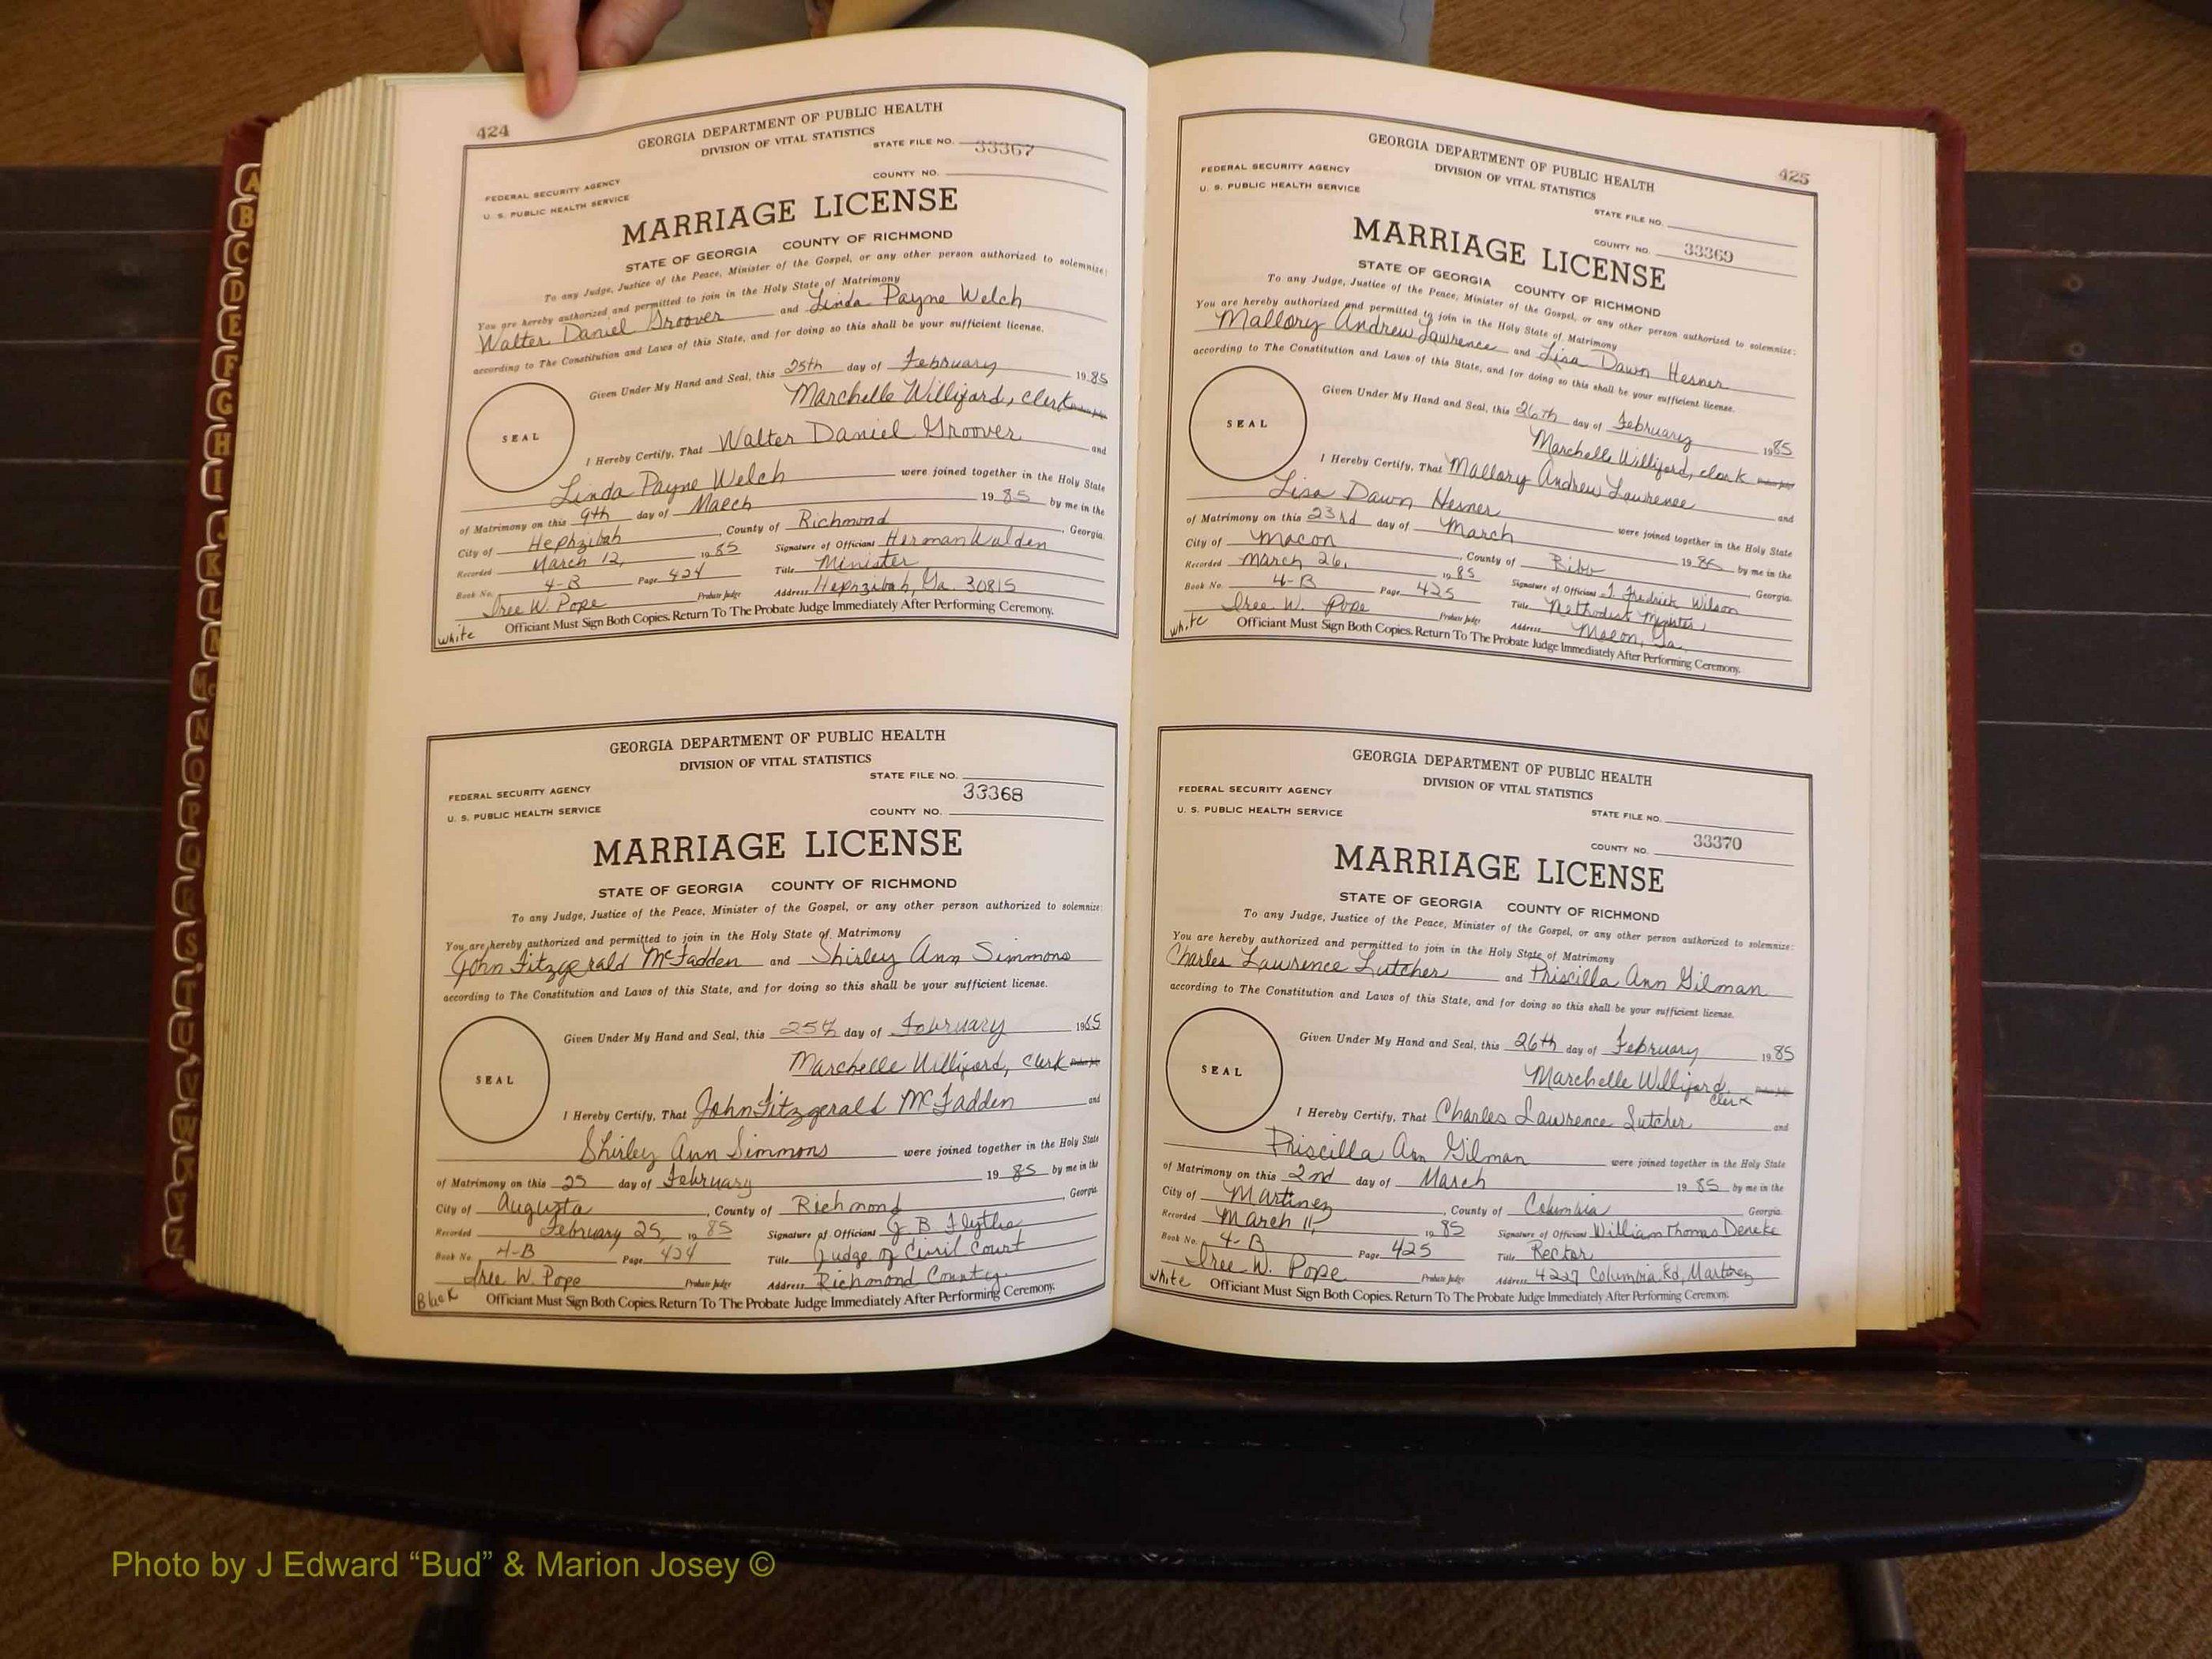 424
GEORGIA DEPARTMENT OF PUBLIC HEALTH
DIVISION OF VITAL STATISTICS
STATE FILE NO. 33367
FEDERAL SECURITY AGENCY
COUNTY NO.
U. S. PUBLIC HEALTH SERVICE
MARRIAGE LICENSE
STATE OF GEORGIA COUNTY OF RICHMOND
To any Judge, Justice of the Peace, Minister of the Gospel, or any other person authorized to solemnize:
You are hereby authorized and permitted to join in the Holy State of Matrimony
Walter Daniel Groover and Linda Payne Welch
according to The Constitution and Laws of this State, and for doing so this shall be your sufficient license.
Given Under My Hand and Seal, this 25th day of February 1985
Marchelle Williford, clerk
SEAL
I Hereby Certify, That Walter Daniel Groover and
Linda Payne Welch were joined together in the Holy State
of Matrimony on this 9th day of March 1985 by me in the
City of Hephzibah, County of Richmond, Georgia.
Recorded March 12, 1985 Signature of Officiant Herman Walden
Book No. 4-B Page 424 Title Minister
Iree W. Pope Probate Judge Address Hephzibah, Ga. 30815
White Officiant Must Sign Both Copies. Return To The Probate Judge Immediately After Performing Ceremony.
GEORGIA DEPARTMENT OF PUBLIC HEALTH
DIVISION OF VITAL STATISTICS
STATE FILE NO.
FEDERAL SECURITY AGENCY
33368
U. S. PUBLIC HEALTH SERVICE
COUNTY NO.
MARRIAGE LICENSE
STATE OF GEORGIA COUNTY OF RICHMOND
To any Judge, Justice of the Peace, Minister of the Gospel, or any other person authorized to solemnize:
You are hereby authorized and permitted to join in the Holy State of Matrimony
John Fitzgerald McFadden and Shirley Ann Simmons
according to The Constitution and Laws of this State, and for doing so this shall be your sufficient license.
Given Under My Hand and Seal, this 25th day of February 1985
Marchelle Williford, Clerk
SEAL
I Hereby Certify, That John Fitzgerald McFadden and
Shirley Ann Simmons were joined together in the Holy State
of Matrimony on this 25 day of February 1985 by me in the
City of Augusta, County of Richmond, Georgia
Recorded February 25, 1985 Signature of Officiant G B Flythe
Book No. 4-B Page 424 Title Judge of Civil Court
Iree W. Pope Probate Judge Address Richmond County
Black Officiant Must Sign Both Copies. Return To The Probate Judge Immediately After Performing Ceremony.
425
GEORGIA DEPARTMENT OF PUBLIC HEALTH
DIVISION OF VITAL STATISTICS
FEDERAL SECURITY AGENCY
U. S. PUBLIC HEALTH SERVICE
STATE FILE NO.
COUNTY NO. 33369
MARRIAGE LICENSE
STATE OF GEORGIA COUNTY OF RICHMOND
To any Judge, Justice of the Peace, Minister of the Gospel, or any other person authorized to solemnize:
You are hereby authorized and permitted to join in the Holy State of Matrimony
Mallory Andrew Lawrence and Lisa Dawn Hesner
according to The Constitution and Laws of this State, and for doing so this shall be your sufficient license.
Given Under My Hand and Seal, this 26th day of February 1985
Marchelle Williford, clerk
SEAL
I Hereby Certify, That Mallory Andrew Lawrence and
Lisa Dawn Hesner were joined together in the Holy State
of Matrimony on this 23rd day of March 1985 by me in the
City of Macon, County of Bibb Georgia.
Recorded March 26, 1985 Signature of Officiant J. Fredrick Wilson
Book No. 4-B Page 425 Title Methodist Minister
Iree W. Pope Probate Judge Address Macon, Ga.
White Officiant Must Sign Both Copies. Return To The Probate Judge Immediately After Performing Ceremony.
GEORGIA DEPARTMENT OF PUBLIC HEALTH
DIVISION OF VITAL STATISTICS
FEDERAL SECURITY AGENCY
U. S. PUBLIC HEALTH SERVICE
STATE FILE NO.
COUNTY NO. 33370
MARRIAGE LICENSE
STATE OF GEORGIA COUNTY OF RICHMOND
To any Judge, Justice of the Peace, Minister of the Gospel, or any other person authorized to solemnize:
You are hereby authorized and permitted to join in the Holy State of Matrimony
Charles Lawrence Lutcher and Priscilla Ann Gilman
according to The Constitution and Laws of this State, and for doing so this shall be your sufficient license.
Given Under My Hand and Seal, this 26th day of February 1985
Marchelle Williford, Clerk
SEAL
I Hereby Certify, That Charles Lawrence Lutcher and
Priscilla Ann Gilman were joined together in the Holy State
of Matrimony on this 2nd day of March 1985 by me in the
City of Martinez, County of Columbia Georgia.
Recorded March 11, 1985 Signature of Officiant William Thomas Deneke
Book No. 4-B Page 425 Title Rector
Iree W. Pope Probate Judge Address 4227 Columbia Rd, Martinez
White Officiant Must Sign Both Copies. Return To The Probate Judge Immediately After Performing Ceremony.
Photo by J Edward “Bud” & Marion Josey ©